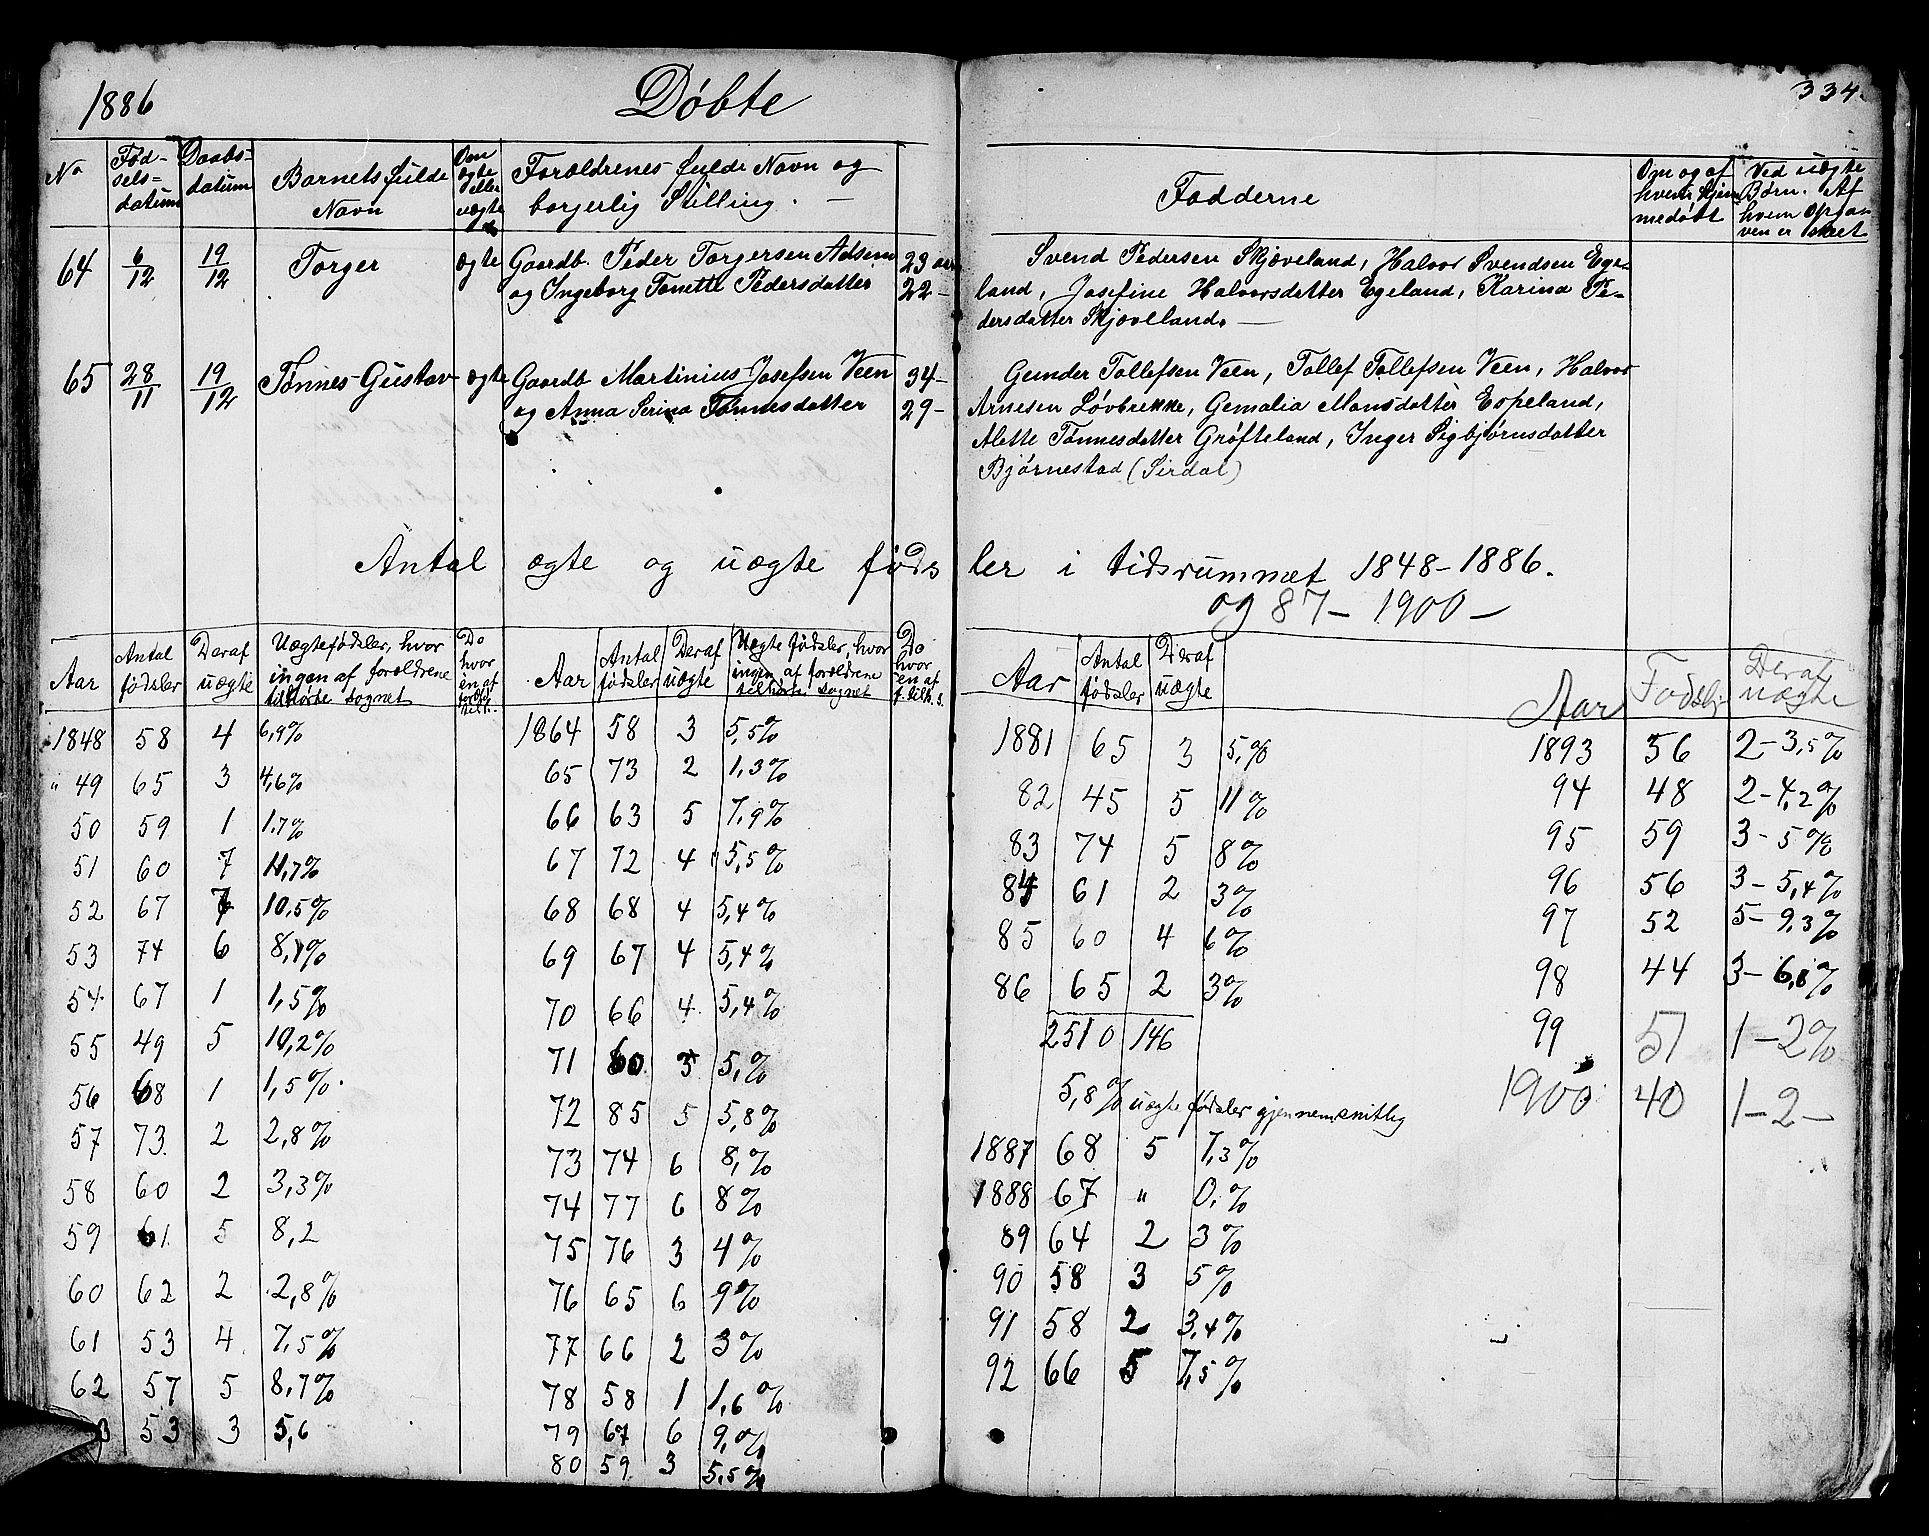 1886 Døbte 334.
No Fød-selsdatum Daabs-datum Barnets fulde Navn Om ægte eller uægte Forældrenes fulde Navn og borgerlig Stilling. — Fadderne Om og af hvem hjemmedøbt Ved uægte Børn. Af hvem Opgaven er skeet
64 6/12 19/12 Torger ægte Gaardb. Peder Torgersen 23 aar Svend Pedersen Skjæveland, Halvor Svendsen Ege-
og Ingeborg Tonette Pedersdatter 22 – land, Josefine Halvorsdatter Egeland, Karina Pe-
dersdatter Skjæveland. —
65 28/11 19/12 Tønnes Gustav ægte Gaardb Martinius Josefsen Veen 34– Gunder Tollefsen Veen, Tollef Tollefsen Veen, Halvor
og Anna Serina Tønnesdatter 29– Arnesen Løvbrekke, Gemalia Monsdatter Espeland,
Alette Tønnesdatter Grøfteland, Inger Sigbjørnsdatter
Bjørnestad (Sirdal)
Antal ægte og uægte fødsler i tidsrummet 1848–1886.
og 87– 1900–
Aar Antal fødsler Deraf uægte Uægte fødsler, hvor ingen af forældrene tilhørte sognet Do hvor en af
1848 58 4 6,9%
" 49 65 3 4,6%
50 59 1 1.7%
51 60 7 11,7%
52 67 7 10,5%
53 74 6 8,1%
54 67 1 1,5%
55 49 5 10,2%
56 68 1 1,5%.
57 73 2 2,8%
58 60 2 3,3%
59 61 5 8,2
60 62 2 2,8%
61 53 4 7,5%
62 57 5 8,7%
3 53 3 5,6
Aar Antal fødsler Deraf uægte Uægte fødsler, hvor ingen af forældrene tilhørte sognet Do hvor en af f. tilh. s.
1864 58 3 5,5%
65 73 2 1,3%
66 63 5 7,9%
67 72 4 5,5%
68 68 4 5,4%
69 67 4 5,4%
70 66 4 5,4%
71 60 3 5,%
72 85 5 5,8%
73 74 6 8,%
74 77 6 8%
75 76 3 4%
76 65 6 9%
77 66 2 3%
78 58 1 1,6%
79 67 6 9,%
80 59 3 5,5%
Aar Antal fødsler Deraf uægte
1881 65 3 5,%
82 45 5 11%
83 74 5 8%
84 61 2 3%
85 60 4 6%
86 65 2 3%
2510 146
5,8% uægte fødsler gjennemsnitlig
1887 68 5 7,3%
1888 67 " 0,%
89 64 2 3%
90 58 3 5%
91 58 2 3,4%
92 66 5 7,5%
Aar Fødsler Deraf uægte
1893 56 2–3,5%
94 48 2–4,2%
95 59 3–5%
96 56 3–5,4%
97 52 5–9,3%
98 44 3–6,8%
99 51 1–2%
1900 40 1–2–